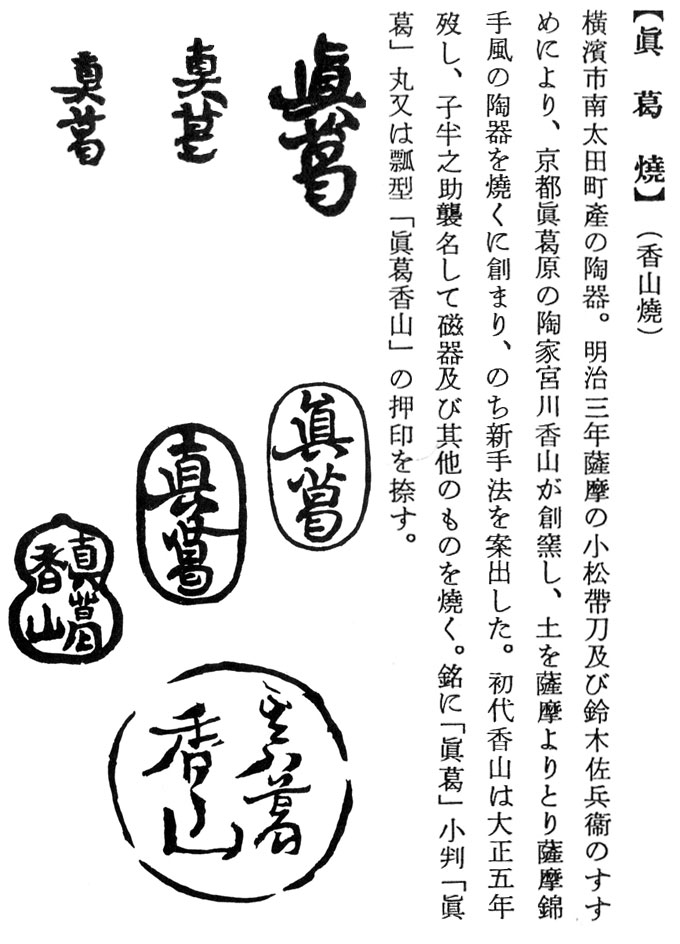 【眞葛燒】（香山燒）
横濱市南太田町產の陶器。明治三年薩摩の小松帶刀及び鈴木佐兵衞のすす
めにより、京都眞葛原の陶家宮川香山が創窯し、土を薩摩よりとり薩摩錦
手風の陶器を燒くに創まり、のち新手法を案出した。初代香山は大正五年
歿し、子半之助襲名して磁器及び其他のものを燒く。銘に「眞葛」小判「眞
葛」丸又は瓢型「眞葛香山」の押印を捺す。
眞葛
真葛
真葛
眞葛
真葛
真葛
香山
真葛
香山